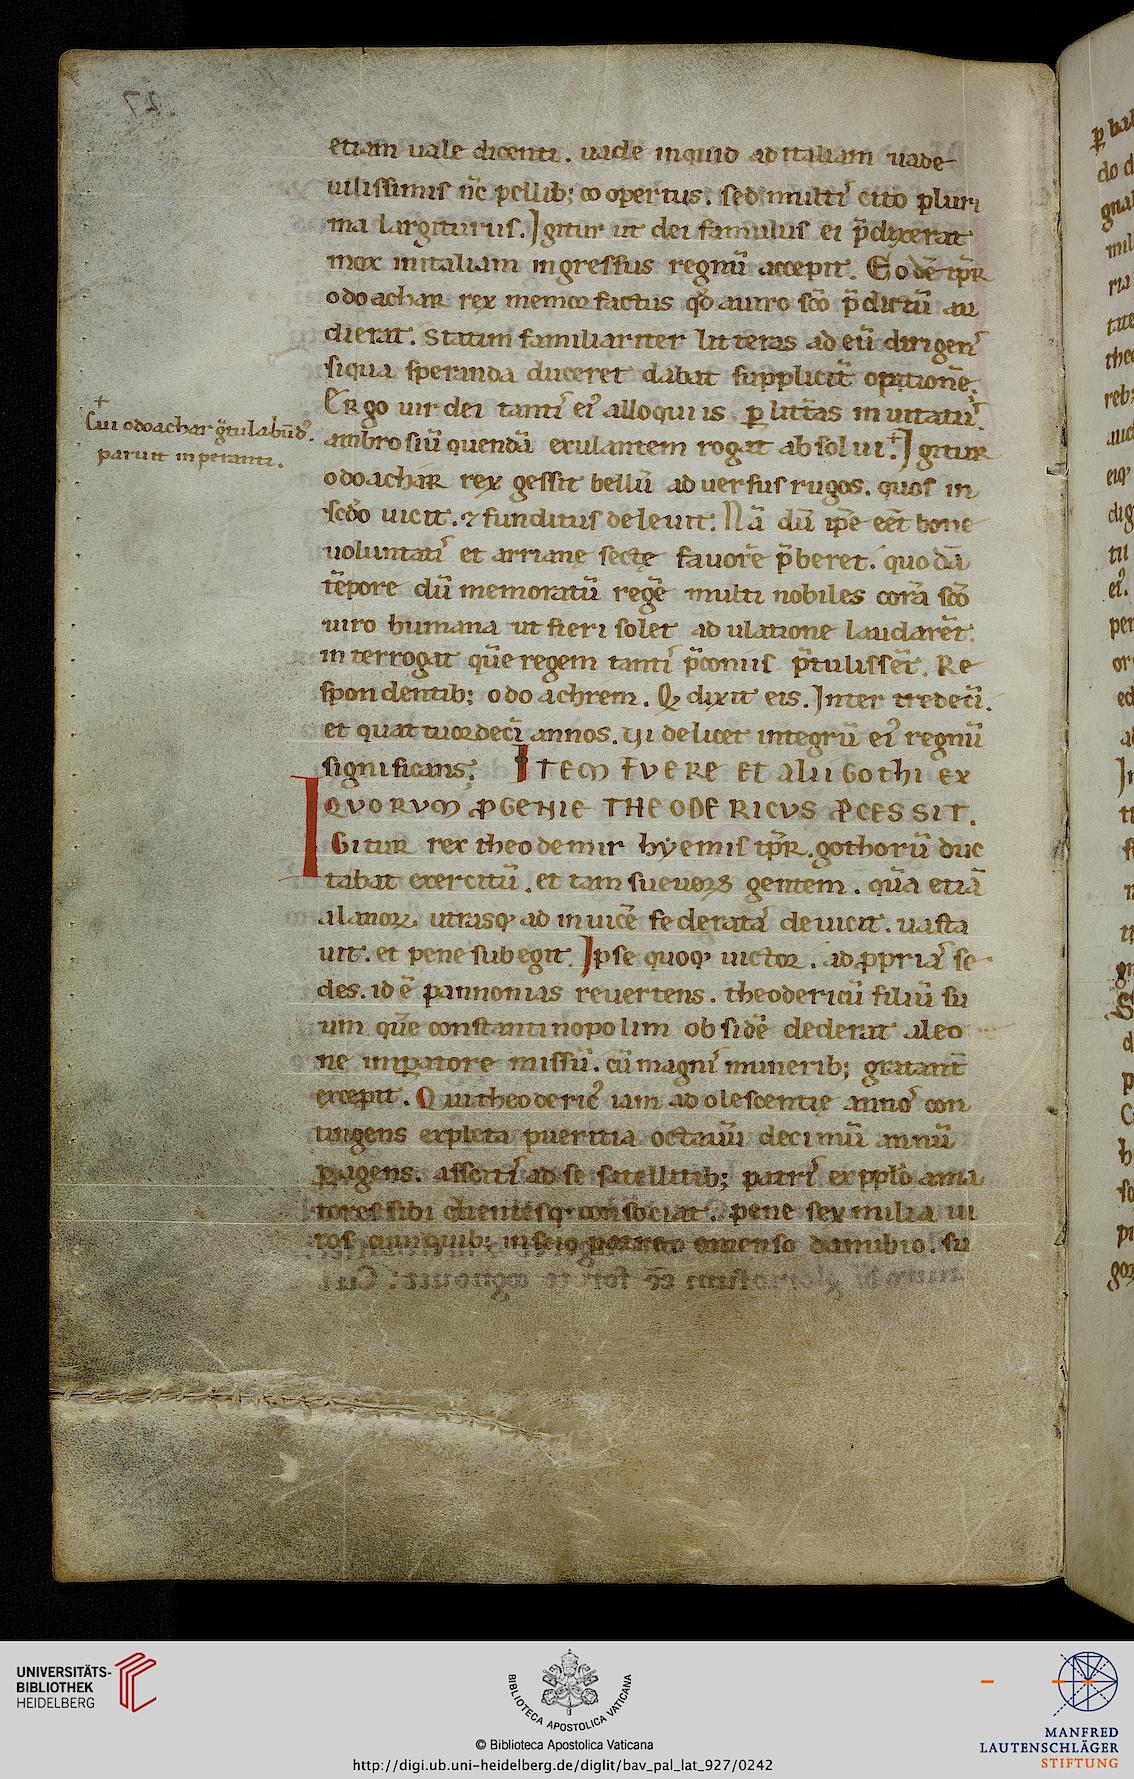 27
etiam uale dicenti. uade inquid ad italiam uade
uilissimis nc̄ pellib; co opertus. sed multiˢ cito pluri
ma largiturus. Igitur ut dei famulus ei p̄dixerat
mox initaliam ingressus regnū accepit. Eodē tp̄r
odoachar rex memor factus qd̄ auiro sc̄o p̄dictū au
dierat. Statim familiariter litteras ad eū dirigenˢ
siqua speranda duceret dabat supplicit̄ optionē.
Ergo uir dei tantiˢ eiˀ alloquiis ꝑ litt̄as inuitatuˢ.
ambrosiū quendā exulantem rogat absolui.⁺ Igitur
odoachar rex gessit bellū aduersus rugos. quos in
sc̄do uicit. ⁊ funditus deleuit. Nā dū ip̄e eēt bone
uoluntatiˢ et arriane sectę fauorē p̄beret. quodā
tēpore dū memoratū regē multi nobiles corā sc̄o
uiro humana ut fieri solet adulatione laudarēt.
interrogat quē regem tantiˢ p̄coniis p̄tulissēt. Re
spondentib; odoachrem. Q dixit eis. Inter tredecī.
et quattuordecī annos. Uidelicet integrū eiˀ regnū
significans; ITEM FUERE ET alii Gothi EX
QUORUM PGENIE THEODERICUS PCESSIT.
Igitur rex theodemir hyemis tp̄r. gothorū duc
tabat exercitū. et tam sueuorꝝ gentem. quā etiā
alanorꝝ utrasqꝫ ad inuicē federataˢ deuicit. uasta
uit. et pene subegit. Ipse quoqꝫ uictor. ad ꝓpriaˢ se
des. id ē pannonias reuertens. theodericū filiū su
um quē constantinopolim obsidē dederat aleo
ne impatore missū. cū magniˢ munerib; gratant̄
excepit. Qui theodericˀ iam adolescentię annoˢ con
tingens expleta pueritia octauū decimū annū
ꝑagens. ascitiˢ ad se satellitib; patriˢ ex pplo ama
tores sibi clientesqꝫ consociat. pene sex milia ui
ros cum quib; inscio patre emenso danubio. su
+
Cui odoachar gr̄tulabūdˀ.
paruit inperanti.
UNIVERSITÄTS-
BIBLIOTHEK
HEIDELBERG
BIBLIOTECA APOSTOLICA VATICANA
© Biblioteca Apostolica Vaticana
http://digi.ub.uni-heidelberg.de/diglit/bav_pal_lat_927/0242
MANFRED
LAUTENSCHLÄGER
STIFTUNG